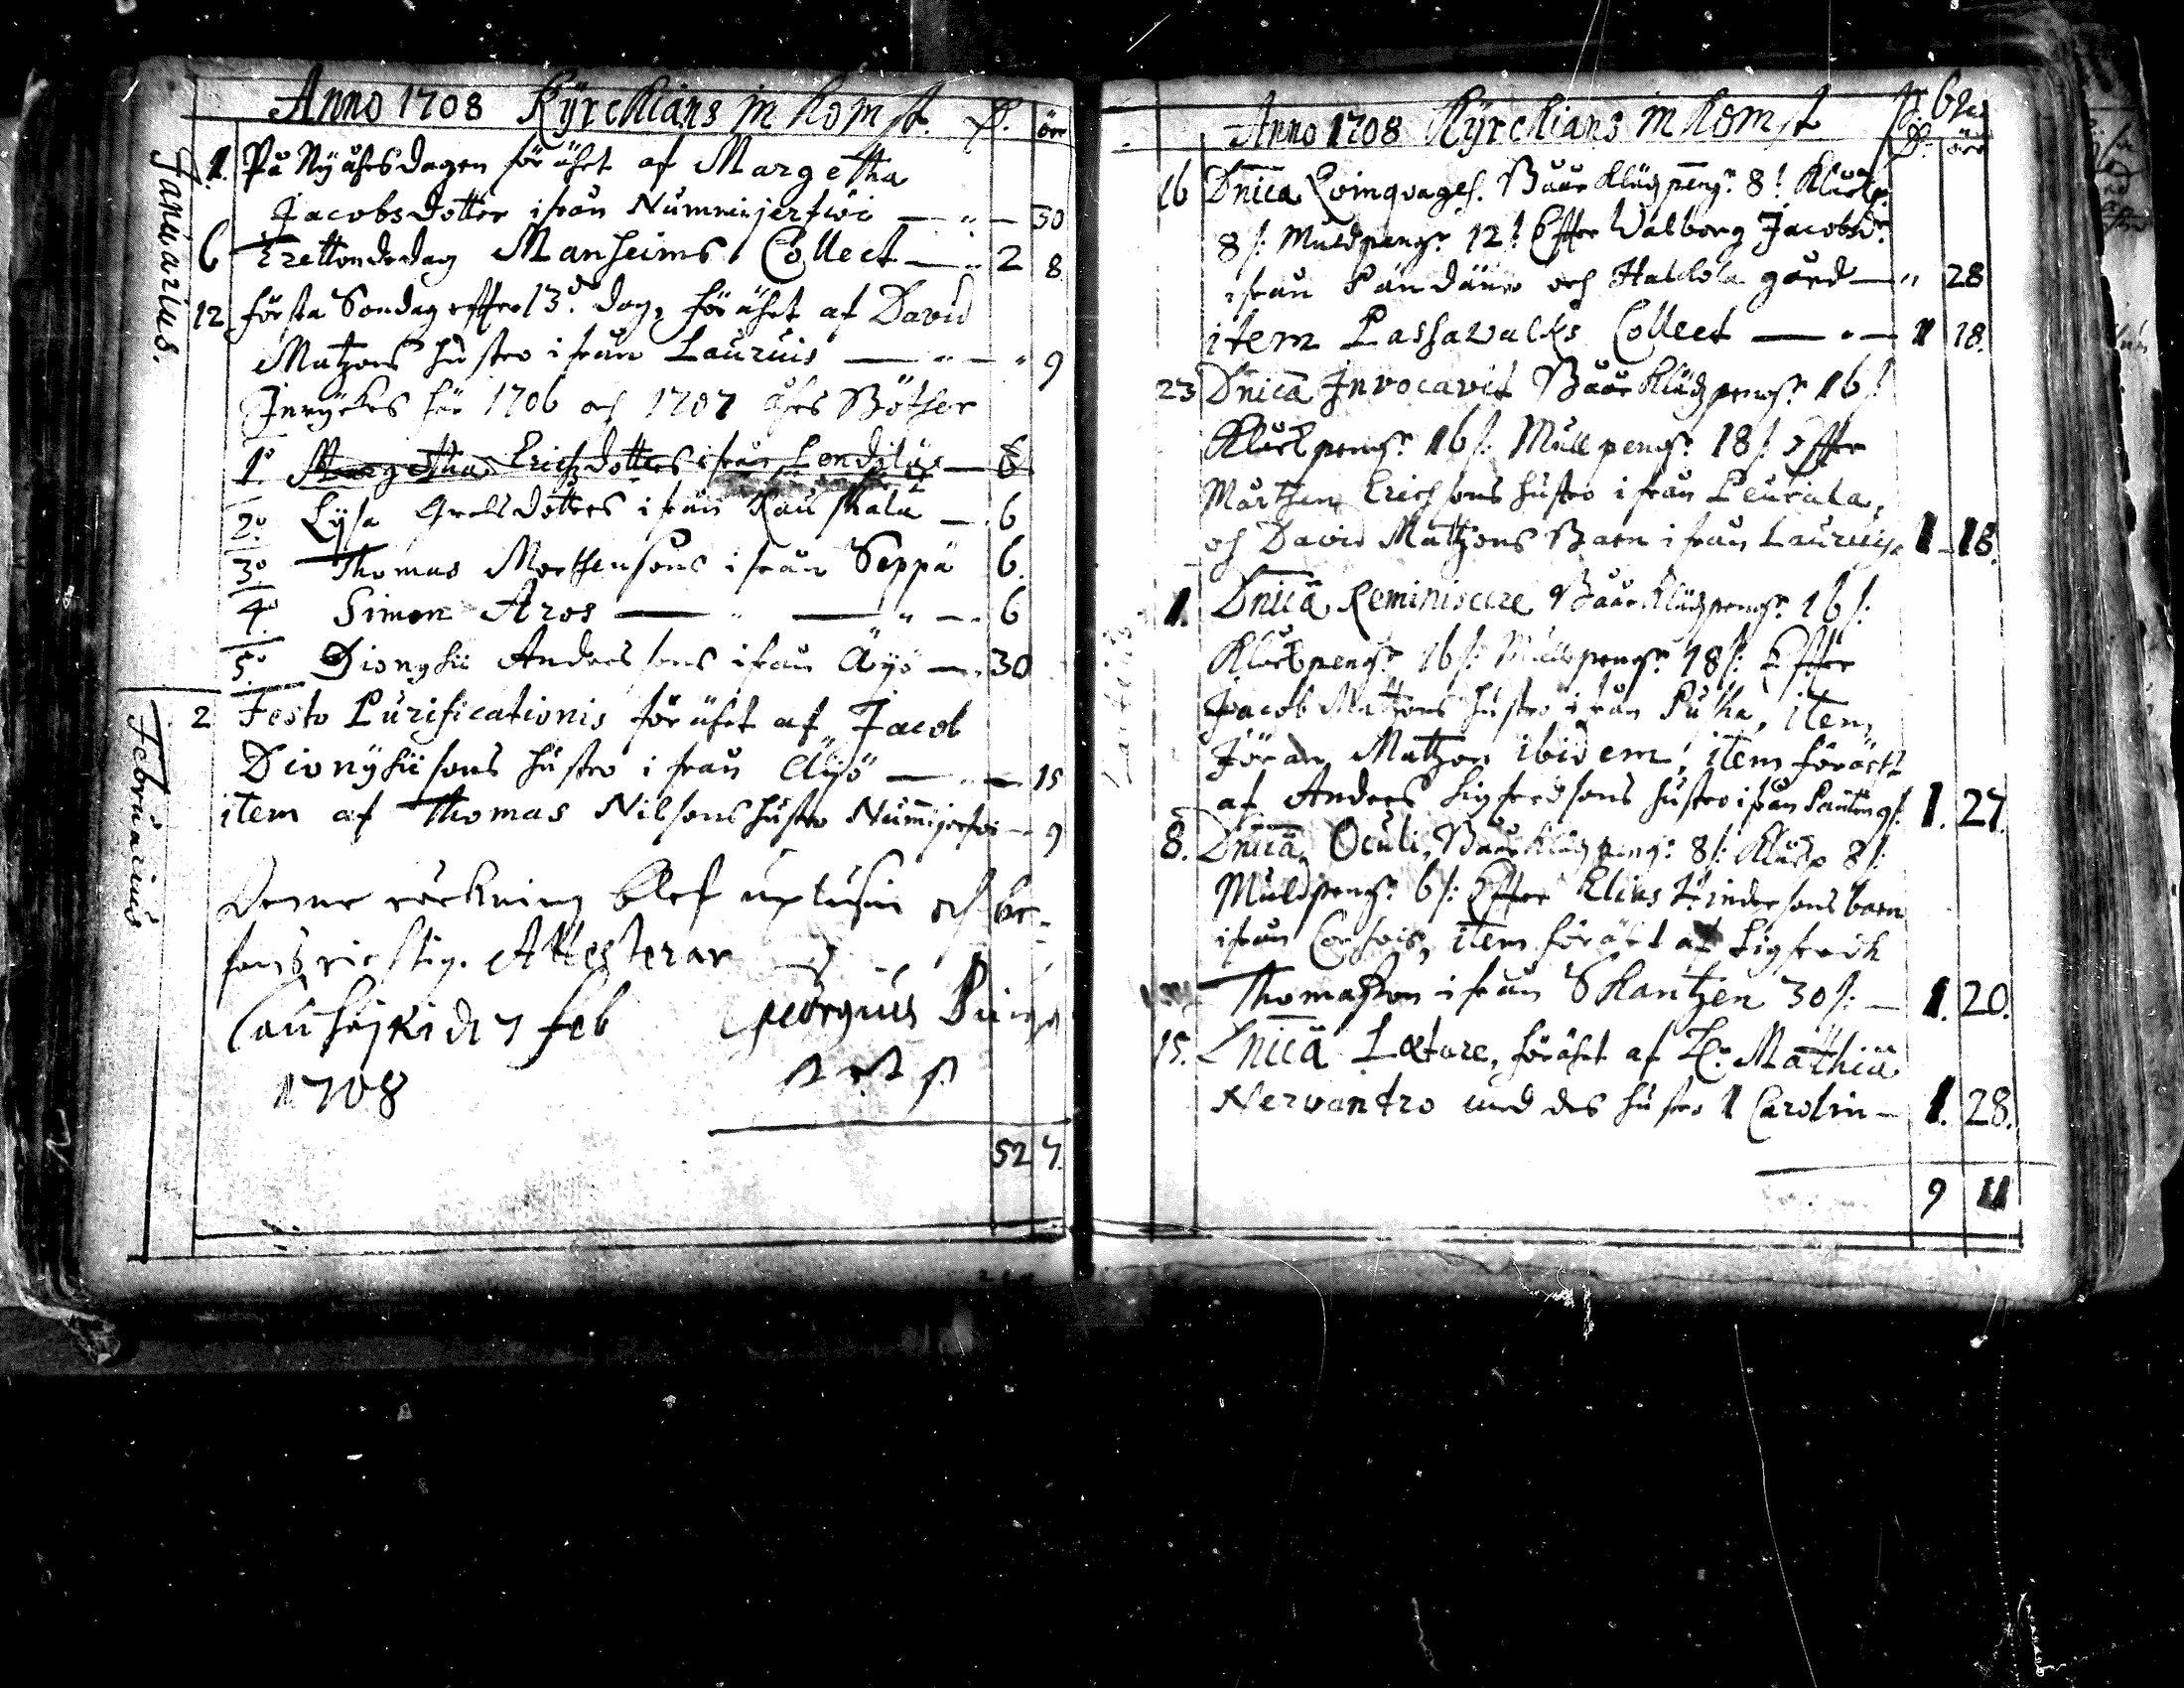 Anno 1708 Kÿrckians in komst. D. öre
Januarius.
1. På Nyåhrsdagen förährt af Margetha
Jacobsdotter ifrån Nummijerfwi — " — 30
6 Trettondedag Manheims Collect — " 2 8
12 första Söndag effter 13.de dag, förährt af David
Matzons hustro ifrån Lauruis — " — " 9
Inryckes här 1706 och 1707 åhrs Böther
1.o Margethas Erichzdotters ifrån — 6
2.o Lysa Grelsdotters ifrån — 6
3.o Thomas Morthensons ifrån Seppä 6.
4.o Simon Aros — " — " — 6
5.o Dionysii Anders sons ifrån Äijö — 30
Februarius
2 Festo Purificationis förährt af Jacob
Dionysii sons hustro ifrån Äijö — " — 15
item af Thomas Nilsons hustro Nummijerfwi — 9
Denne räckning blef uplesin och be-
fans richtig. Attesterar
7 feb Georgius
1708
52 7.
Anno 1708 Kÿrckians in komst D. öre
16 Dnica Qvinqvages. Båår Klädz peng.r 8 !. Klåckp.
8 /: Muldpeng.r 12 ! Effter Walborg Jacobsd.r
ifrån och Hallola gård — " 28
item Passawalks Collect — " — 1 18.
23 Dnica Invocavit Båår Klädz peng.r 16 /
Klåckpeng.r 16 /: Mullpeng.r 18 /. Effter
Mårthen Erichsons hustro ifrån Peurala,
och David Matzons Barn ifrån Lauruis. 1 — 18.
1. Dnica Reminiscere Båår Klädz peng.r 16 /:
Klåckpeng.r 16 /: Mullpeng.r 18 /: Effter
Jacob Matzons hustro ifrån Puhk, item
Jöran Matzon ibidem, item förärt
af Anders Sigfredsons hustro ifrån 1. 27.
8. Dnica Oculi, Båår Klädz peng: 8 /: Klåckp 8 /:
Muldpeng.r 6 /: Effter Elias barn
ifrån item förährt af Sigfredh
Thomasson ifrån Skantzen 30 /: — 1. 20.
15. Dnica Lætare, förährt af H.r Mathia
Nervandro med des hustro 1 Carolin — 1. 28.
9 11